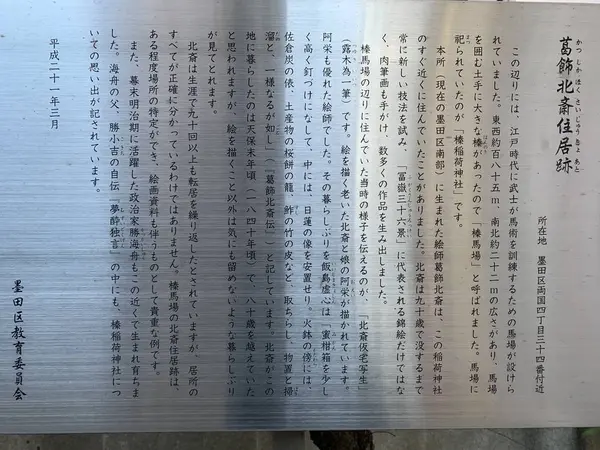 かつしかほくさいじゅうきょあと
葛飾北斎住居跡
所在地 墨田区両国四丁目三十四番付近
この辺りには、江戸時代に武士が馬術を訓練するための馬場が設けら
れていました。東西約百八十五m、南北約二十二mの広さがあり、馬場
を囲む土手に大きな榛があったので「榛馬場」と呼ばれました。馬場に
祀られていたのが「榛稲荷神社」です。
本所（現在の墨田区南部）に生まれた絵師葛飾北斎は、この稲荷神社
のすぐ近くに住んでいたことがありました。北斎は九十歳で没するまで
常に新しい技法を試み、「冨嶽三十六景」に代表される錦絵だけではな
く、肉筆画も手がけ、数多くの作品を生み出しました。
榛馬場の辺りに住んでいた当時の様子を伝えるのが、「北斎仮宅写生」
（露木為一筆）です。絵を描く老いた北斎と娘の阿栄が描かれています。
阿栄も優れた絵師でした。その暮らしぶりを飯島虚心は「蜜柑箱を少し
く高く釘づけになして、中には、日蓮の像を安置せり。火鉢の傍には、
佐倉炭の俵、土産物の桜餅の籠、鮓の竹の皮など、取ちらし、物置と掃
溜と、一様なるが如し」（「葛飾北斎伝」）と記しています。北斎がこの
地に暮らしたのは天保末年頃（一八四十年頃）で、八十歳を越えていた
と思われますが、絵を描くこと以外は気にも留めないような暮らしぶり
が見てとれます。
北斎は生涯で九十回以上も転居を繰り返したとされていますが、居所の
すべてが正確に分かっているわけではありません。榛馬場の北斎住居跡は、
ある程度場所の特定ができ、絵画資料も伴うものとして貴重な例です。
また、幕末明治期に活躍した政治家勝海舟もこの近くで生まれ育ちま
した。海舟の父、勝小吉の自伝「夢酔独言」の中にも、榛稲荷神社につ
いての思い出が記されています。
平成二十一年三月
墨田区教育委員会